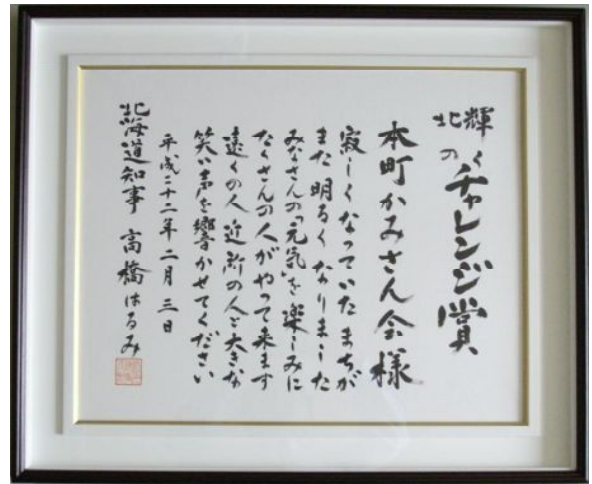 輝く北のチャレンジ賞
本町かみさん会様
寂しくなっていたまちが
また明るくなりました
みなさんの「元気」を楽しみに
たくさんの人がやって来ます
遠くの人近所の人と大きな
笑い声を響かせてください
平成二十二年二月三日
北海道知事 高橋はるみ